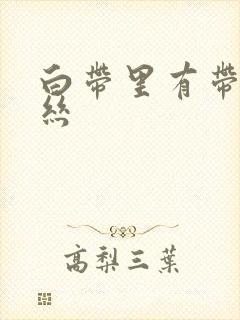 白带里有带
丝
高梨三葉